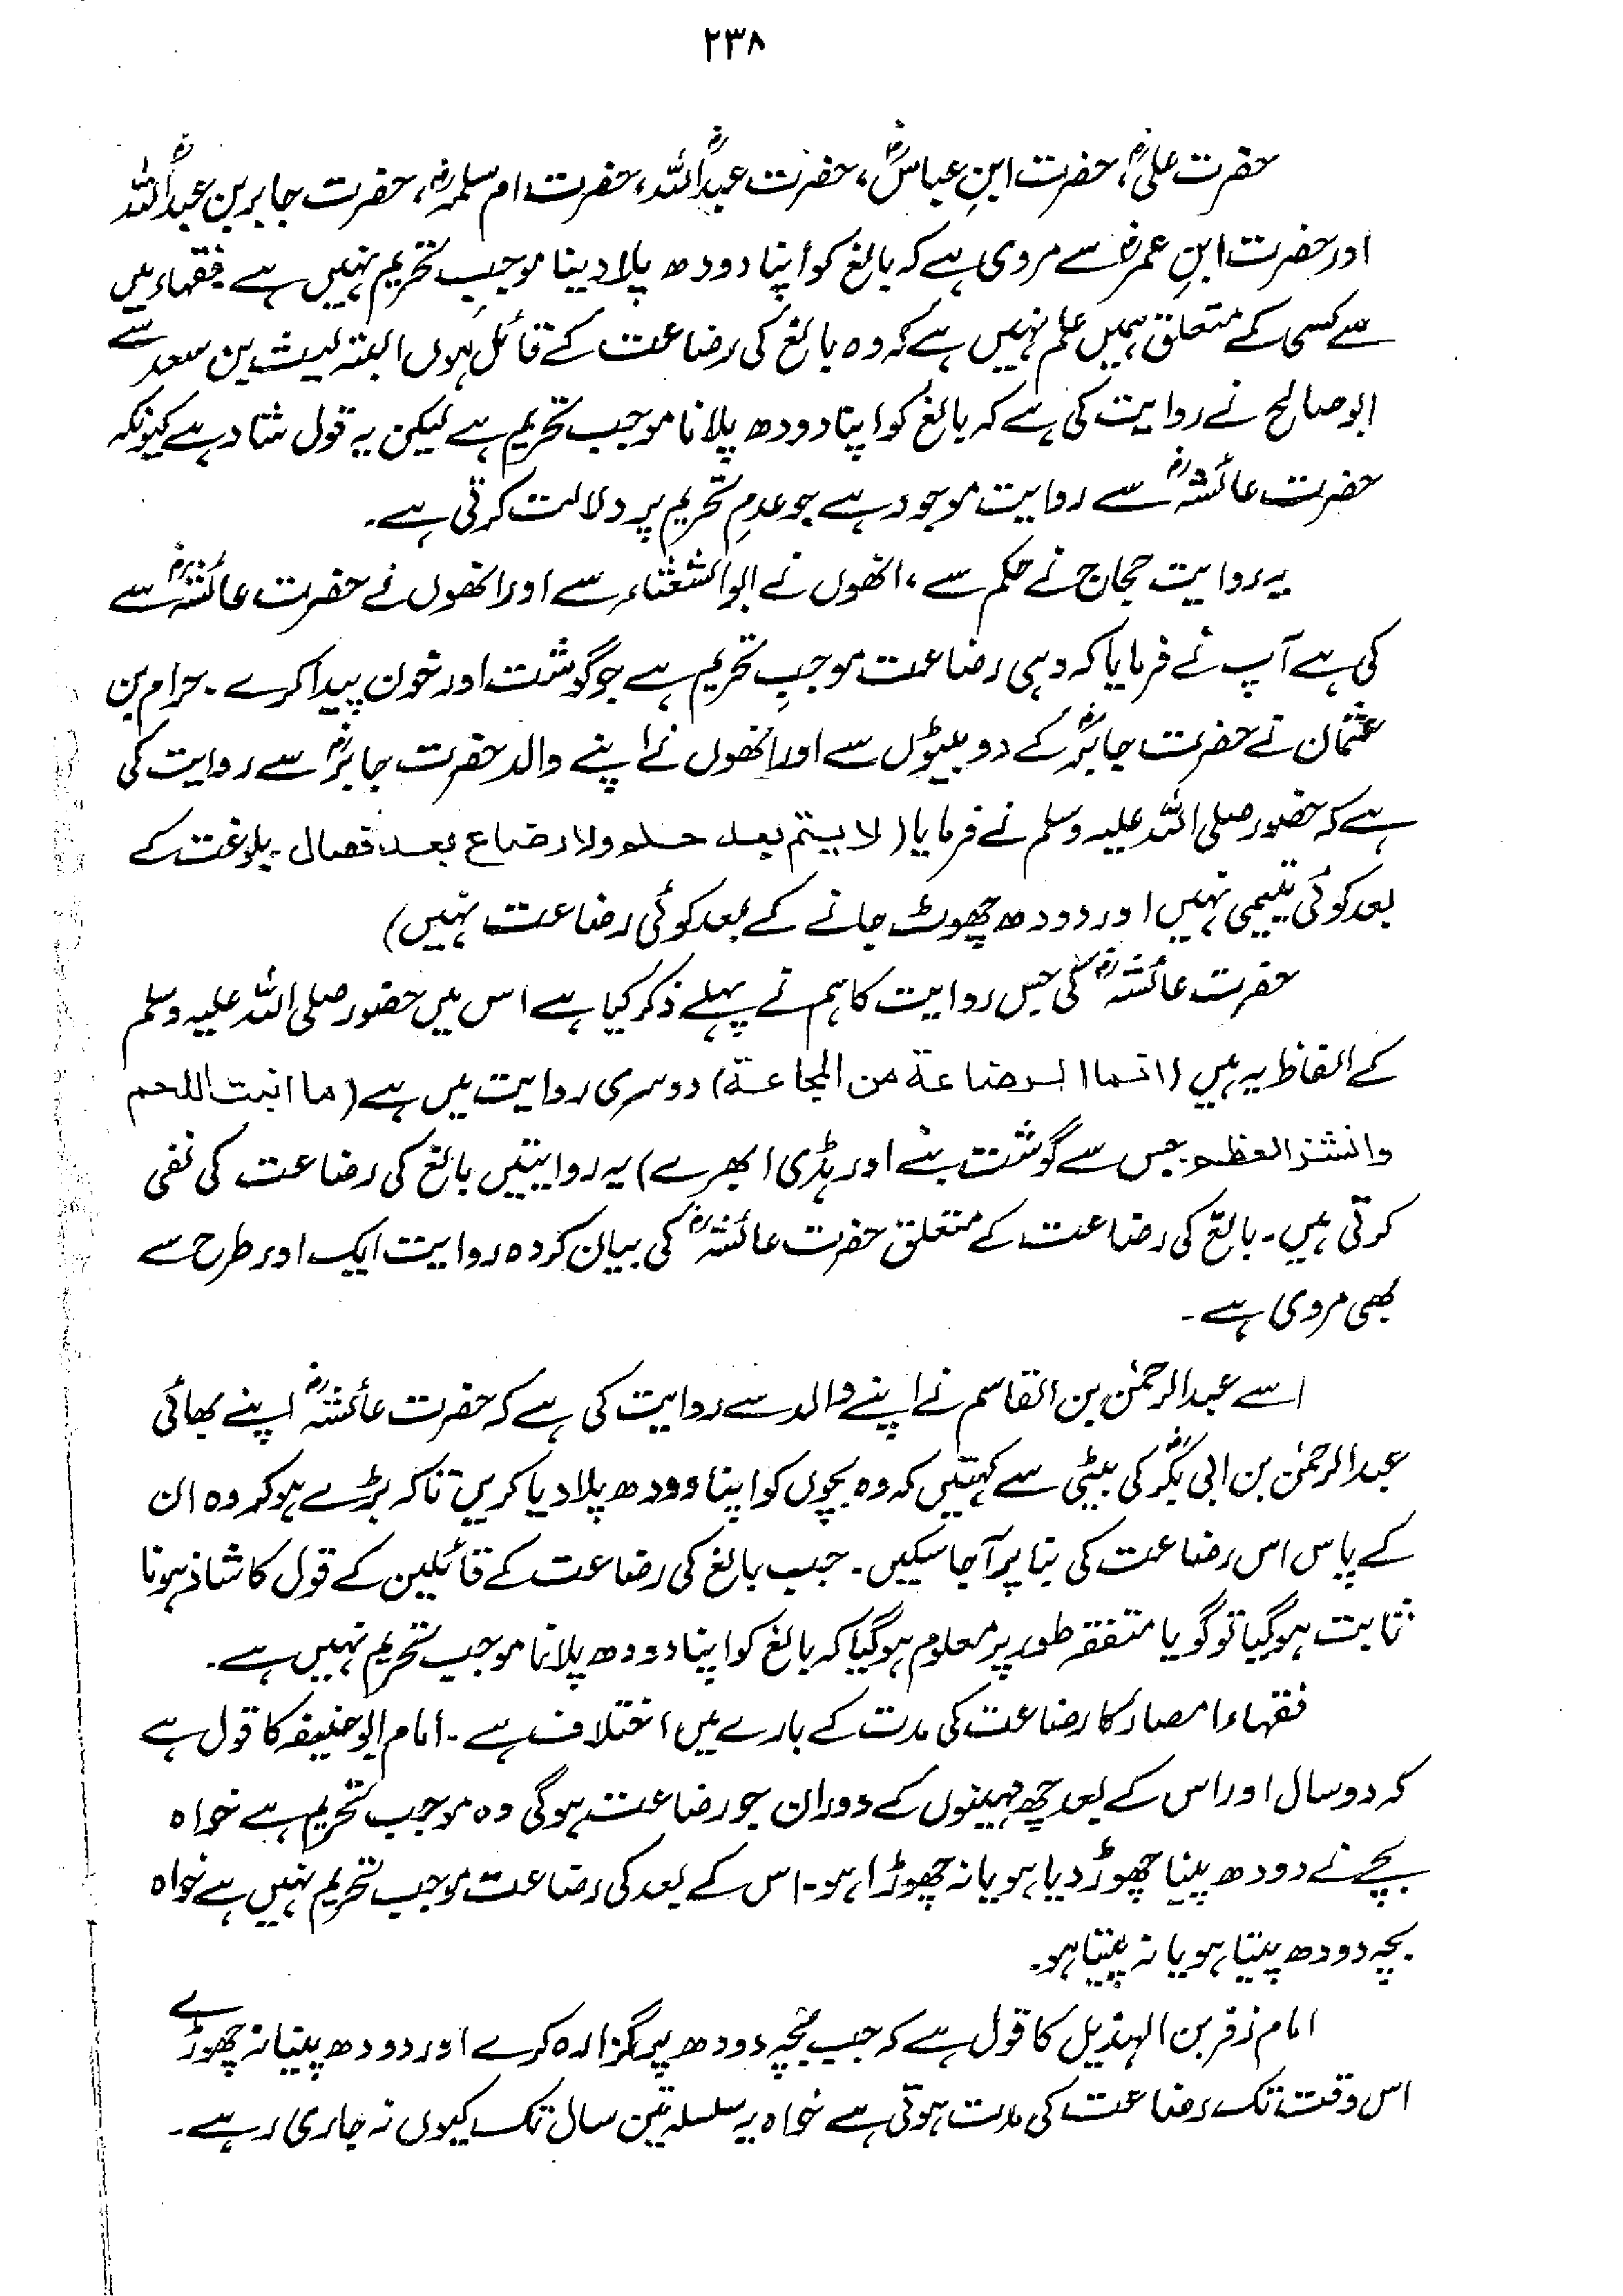 ۲۳۸
حضرت علیؓ، حضرت ابنِ عباسؓ، حضرت عبداللہؓ، حضرت ام سلمہؓ، حضرت جابر بن عبداللہؓ
اور حضرت ابنِ عمرؓ سے مروی ہے کہ بالغ کو اپنا دودھ پلا دینا موجبِ تحریم نہیں ہے۔ فقہاء میں
سے کسی کے متعلق ہمیں علم نہیں ہے کہ وہ بالغ کی رضاعت کے قائل ہوں البتہ لیث بن سعد سے
ابوصالح نے روایت کی ہے کہ بالغ کو اپنا دودھ پلانا موجب تحریم ہے لیکن یہ قول شاذ ہے کیونکہ
حضرت عائشہؓ سے روایت موجود ہے جو عدمِ تحریم پر دلالت کرتی ہے۔
یہ روایت حجاج نے حکم سے، انھوں نے ابوالشعثاء سے اور انھوں نے حضرت عائشہؓ سے
کی ہے آپ نے فرمایا کہ وہی رضاعت موجبِ تحریم ہے جو گوشت اور خون پیدا کرے۔ حرام بن
عثمان نے حضرت جابرؓ کے دو بیٹوں سے اور انھوں نے اپنے والد حضرت جابرؓ سے روایت کی
ہے کہ حضور صلی اللہ علیہ وسلم نے فرمایا (لا یتم بعد حلم ولا رضاع بعد فصال۔ بلوغت کے
بعد کوئی یتیمی نہیں اور دودھ چھوٹ جانے کے بعد کوئی رضاعت نہیں)
حضرت عائشہؓ کی جس روایت کا ہم نے پہلے ذکر کیا ہے اس میں حضور صلی اللہ علیہ وسلم
کے الفاظ یہ ہیں (انما الرضاعة من المجاعة) دوسری روایت میں ہے (ما انبت اللحم
وانشز العظم۔ جس سے گوشت بنے اور ہڈی ابھرے) یہ روایتیں بالغ کی رضاعت کی نفی
کرتی ہیں۔ بالغ کی رضاعت کے متعلق حضرت عائشہؓ کی بیان کردہ روایت ایک اور طرح سے
بھی مروی ہے۔
اسے عبدالرحمٰن بن القاسم نے اپنے والد سے روایت کی ہے کہ حضرت عائشہؓ اپنے بھائی
عبدالرحمٰن بن ابی بکرؓ کی بیٹی سے کہتیں کہ وہ بچوں کو اپنا دودھ پلا دیا کریں تاکہ بڑے ہو کر وہ ان
کے پاس اس رضاعت کی بنا پر آ جا سکیں۔ جب بالغ کی رضاعت کے قائلین کے قول کا شاذ ہونا
ثابت ہو گیا تو گویا متفقہ طور پر معلوم ہو گیا کہ بالغ کو اپنا دودھ پلانا موجب تحریم نہیں ہے۔
فقہاء امصار کا رضاعت کی مدت کے بارے میں اختلاف ہے۔ امام ابو حنیفہ کا قول ہے
کہ دو سال اور اس کے بعد چھ مہینوں کے دوران جو رضاعت ہوگی وہ موجب تحریم ہے خواہ
بچے نے دودھ پینا چھوڑ دیا ہو یا نہ چھوڑا ہو۔ اس کے بعد کی رضاعت موجب تحریم نہیں ہے خواہ
بچہ دودھ پیتا ہو یا نہ پیتا ہو۔
امام زفر بن الہذیل کا قول ہے کہ جب بچہ دودھ پر گزارہ کرے اور دودھ پینا نہ چھوڑے
اس وقت تک رضاعت کی مدت ہوتی ہے خواہ یہ سلسلہ تین سال تک کیوں نہ جاری رہے۔